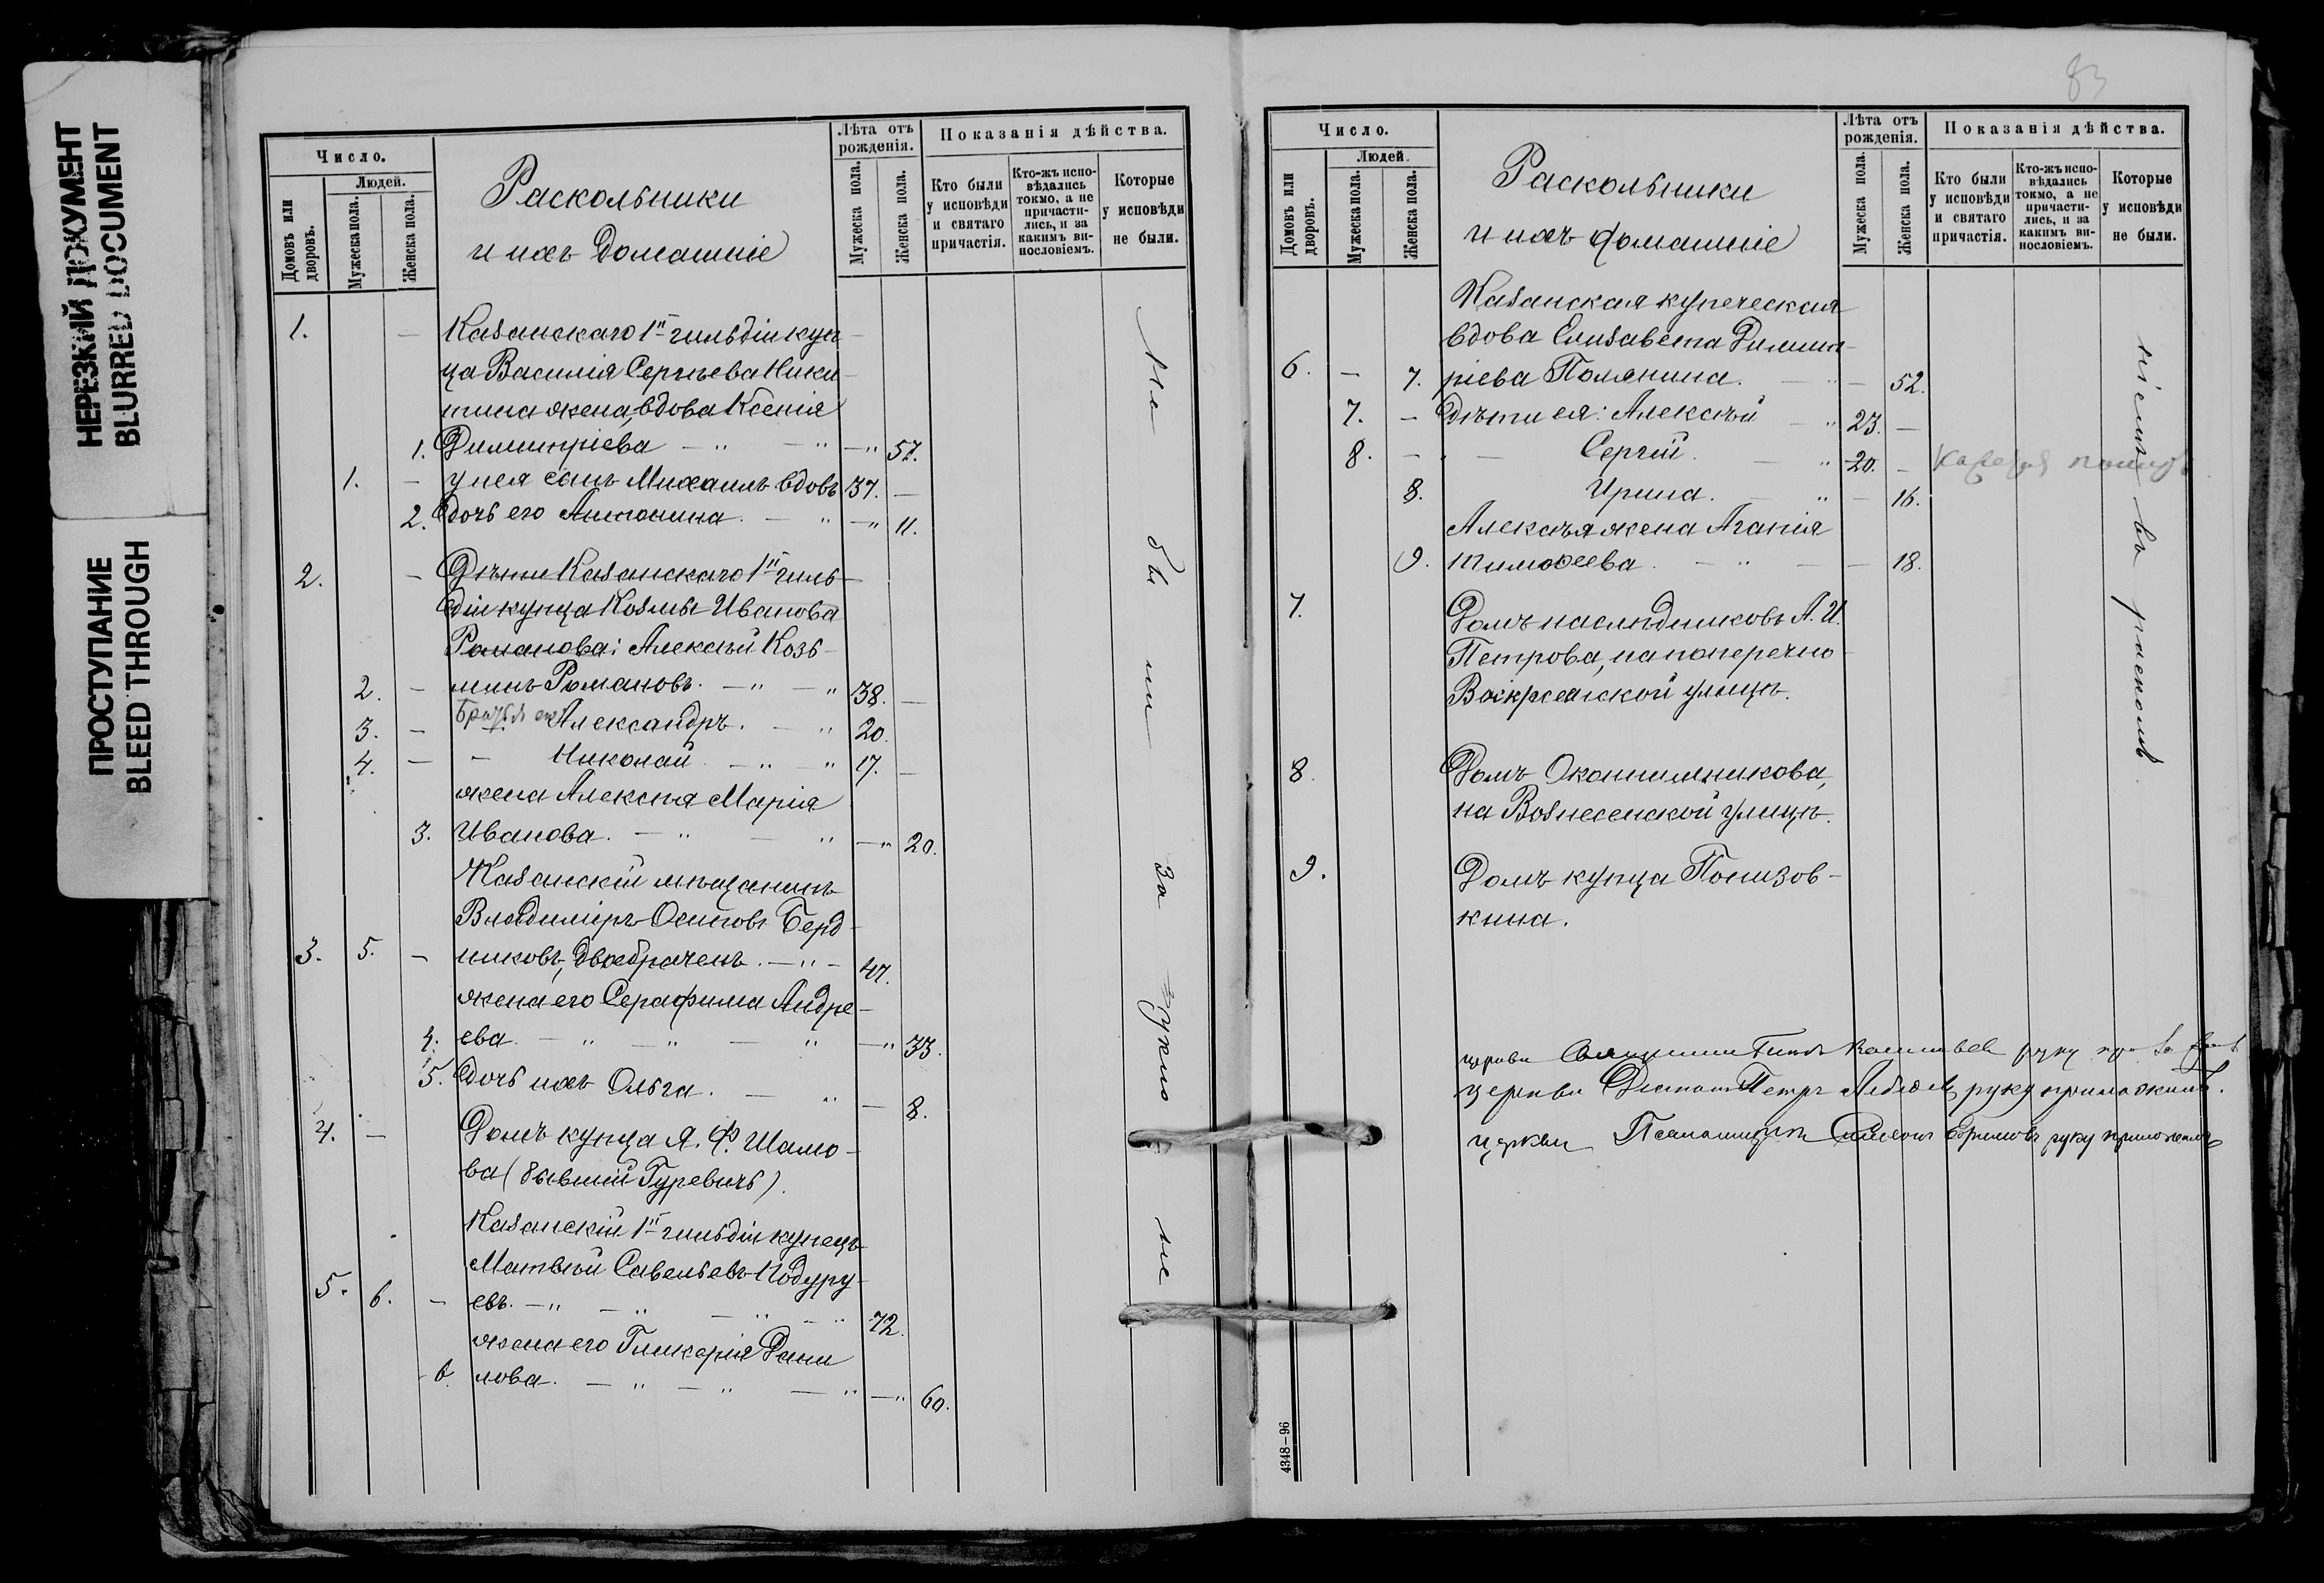 НЕРЕЗКИЙ ДОКУМЕНТ
BLURRED DOCUMENT
ПРОСТУПАНИЕ
BLEED THROUGH
Число.
Людей.
Домовъ или дворовъ.
Мужеска пола.
Женска пола.
Раскольники
и ихъ домашніе
Лѣта отъ рожденія.
Мужеска пола.
Женска пола.
Показанія дѣйства.
Кто были у исповѣди и святаго причастія.
Кто-жъ испо-вѣдались токмо, а не причасти-лись, и за какимъ ви-нословіемъ.
Которые у исповѣди не были.
1. — Казанскаго 1й гильдіи куп-
ца Василія Сергѣева Ники-
тина жена, вдова Ксенія
1. Димитріева — " — " — " 57.
1. — у нея сынъ Михаилъ вдовъ 37. —
2. дочь его Антонина. — " — " 11.
2. — Дѣти Казанскаго 1й гиль-
діи купца Козмы Иванова
Романова: Алексѣй Козь-
2. — минъ Романовъ. — " — " 38. —
3. — Братья его Александръ. — " 20.
4. — — Николай — " — " 17. —
жена Алексѣя Марія
3. Иванова. — " — " — " 20.
Казанскій мѣщанинъ
Владиміръ Осиповъ Берд-
3. 5. — никовъ, двоебраченъ. — " — 47.
жена его Серафима Андре-
4. ева. — " — " — " — " 33.
5. дочь ихъ Ольга. — " — 8.
4. — Домъ купца Я. Ф. Шамо-
ва (бывшій Гуревичъ).
Казанскій 1й гильдіи купецъ
Матвѣй Савельевъ Кодуру-
5. 6. — евъ. — " — " — " — " 72.
жена его Гликерія Дани
6. лова. — " — " — " — " 60.
Не были за нужно не
83
Число.
Людей.
Домовъ или дворовъ.
Мужеска пола.
Женска пола.
Раскольники
и ихъ домашніе
Лѣта отъ рожденія.
Мужеска пола.
Женска пола.
Показанія дѣйства.
Кто были у исповѣди и святаго причастія.
Кто-жъ испо-вѣдались токмо, а не причасти-лись, и за какимъ ви-нословіемъ.
Которые у исповѣди не были.
Казанская купеческая
вдова Елизавета Димит-
6. — 7. ріева Полянина. — " — 52.
7. — Дѣти ея: Алексѣй — " 23. —
8. — — Сергій. — " 20. —
8. Ирина. — " — 16.
Алексѣя жена Агапія
9. Тимоѳеева. — " — — 18.
7. Домъ наслѣдниковъ А. И.
Петрова, на поперечно-
Воскресенской улицѣ.
8. Домъ Оконишникова,
на Вознесенской улицѣ.
9. Домъ купца Понизов-
кина.
ніемъ въ расколѣ.
церкви Священникъ
церкви Діаконъ Петръ руку приложилъ.
церкви Псаломщикъ Ефимовъ руку приложилъ
4348—96